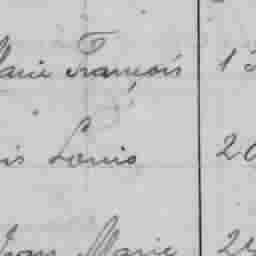 Marie François 1
is Louis 20
Jean Marie 2